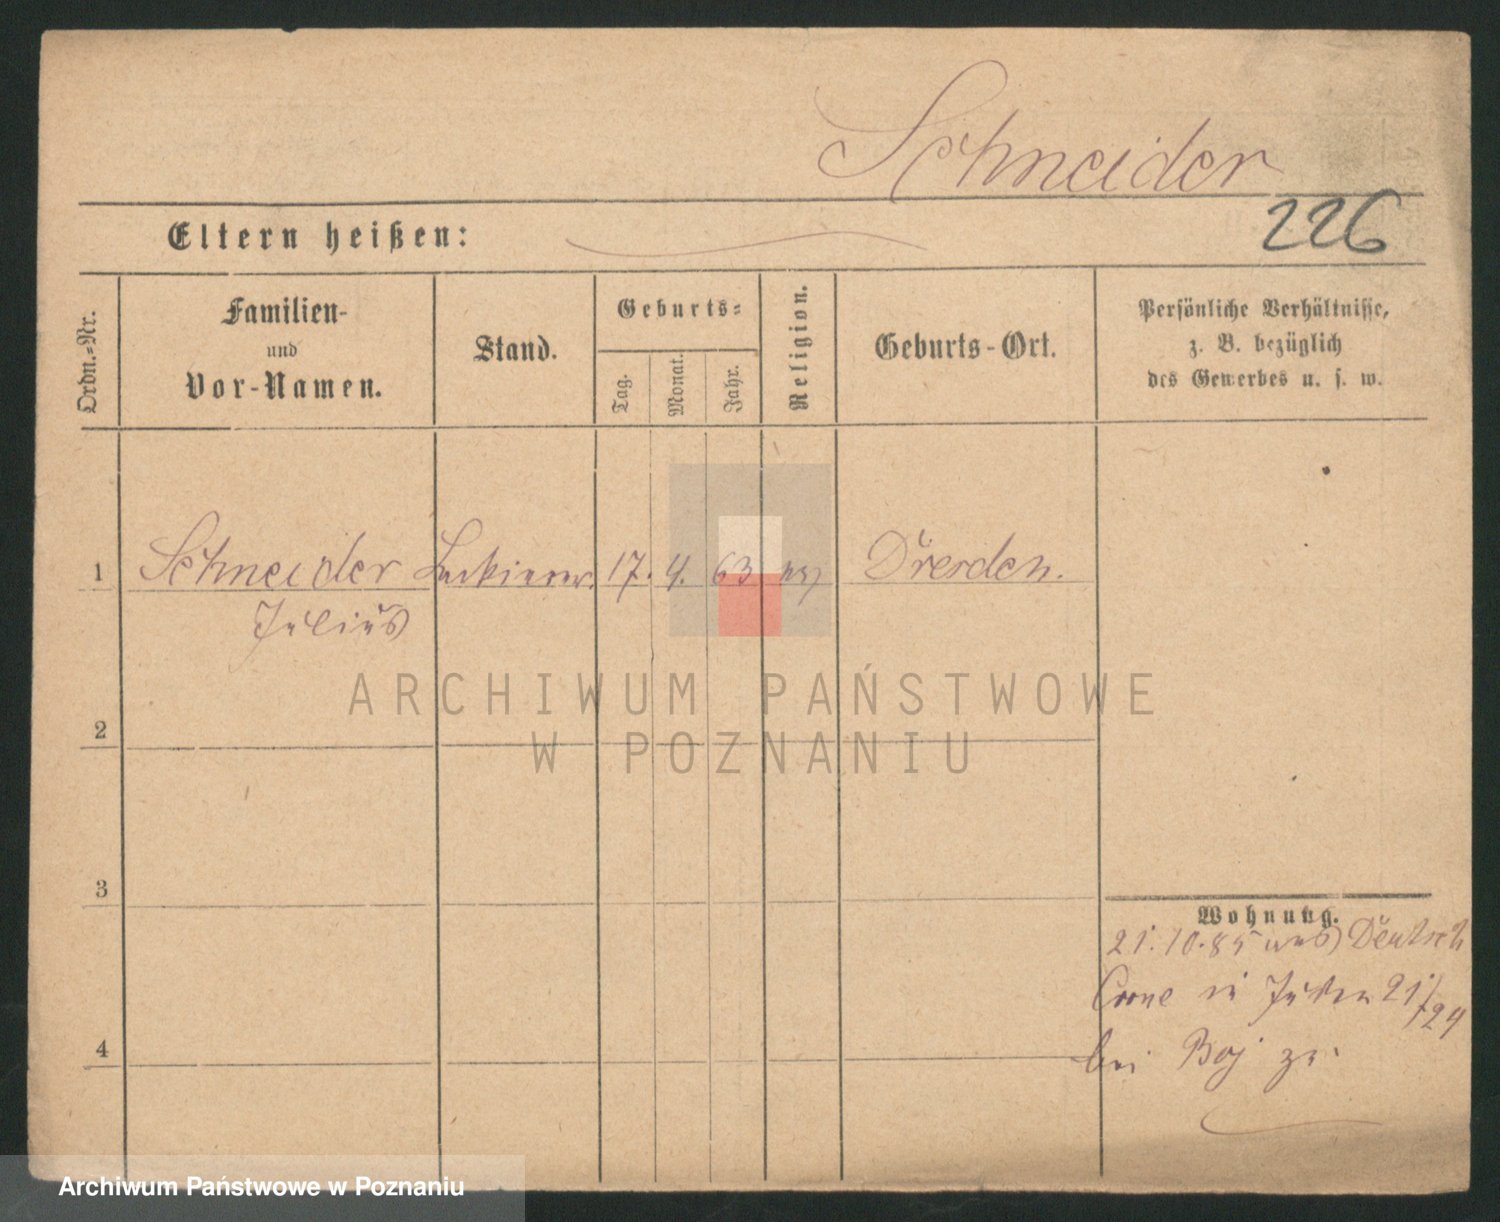 Schneider
226
Eltern heißen:
Ordn.-Nr.
Familien-
und
Vor-Namen.
Stand.
Geburts-
Tag.
Monat.
Jahr.
Religion.
Geburts-Ort.
Persönliche Verhältnisse,
z. B. bezüglich
des Gewerbes u. s. w.
1 Schneider Lackierer. 17. 4. 63 Dresden.
Julius
ARCHIWUM PAŃSTWOWE
W POZNANIU
2
3
Wohnung.
21.10.85 aus Deutsch
Crone in 21/24
4
bei zu
Archiwum Państwowe w Poznaniu